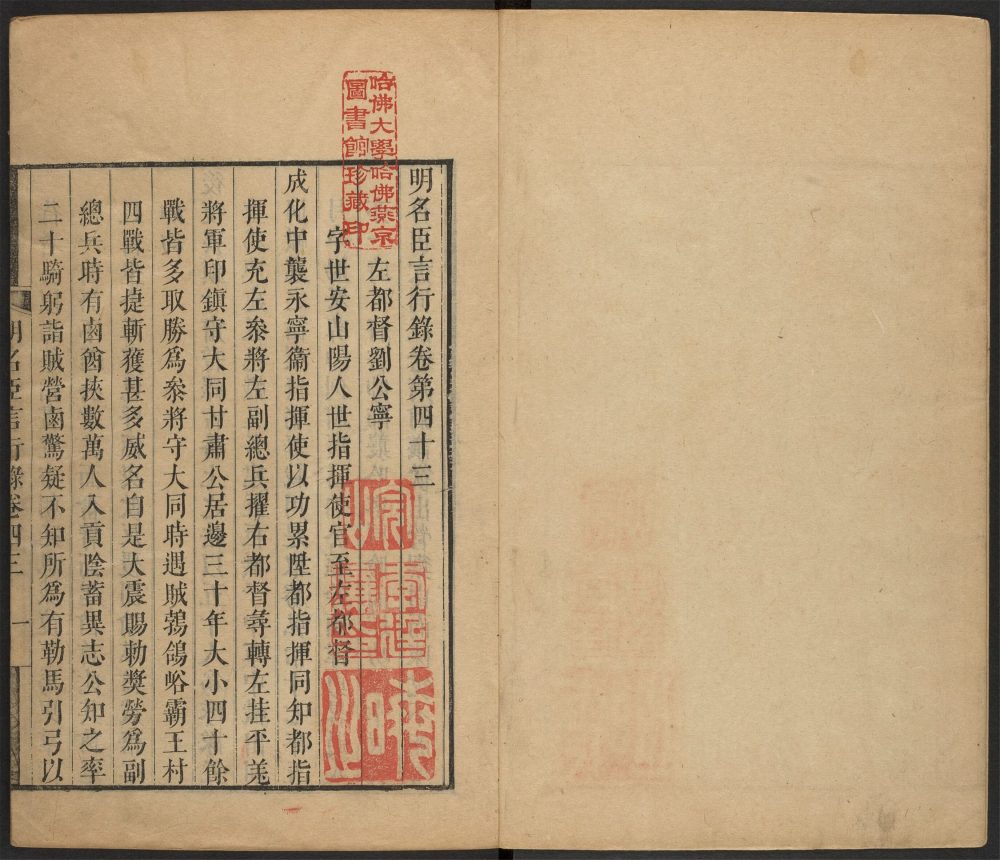 明名臣言行錄卷第四十三
左都督劉公寧
字世安山陽人世指揮使官至左都督
成化中襲永寧衞指揮使以功累陞都指揮同知都指
揮使充左叅將左副總兵擢右都督尋轉左挂平羗
將軍印鎭守大同甘肅公居邊三十年大小四十餘
戰皆多取勝爲叅將守大同時遇賊鵓鴿峪霸王村
四戰皆捷斬獲甚多威名自是大震賜勅奬勞爲副
總兵時有鹵酋挾數萬人入貢陰蓄異志公知之率
二十騎躬詣賊營鹵驚疑不知所爲有勒馬引弓以
明名臣言行錄卷四三
一
哈佛大學哈佛燕京
圖書館珍藏印